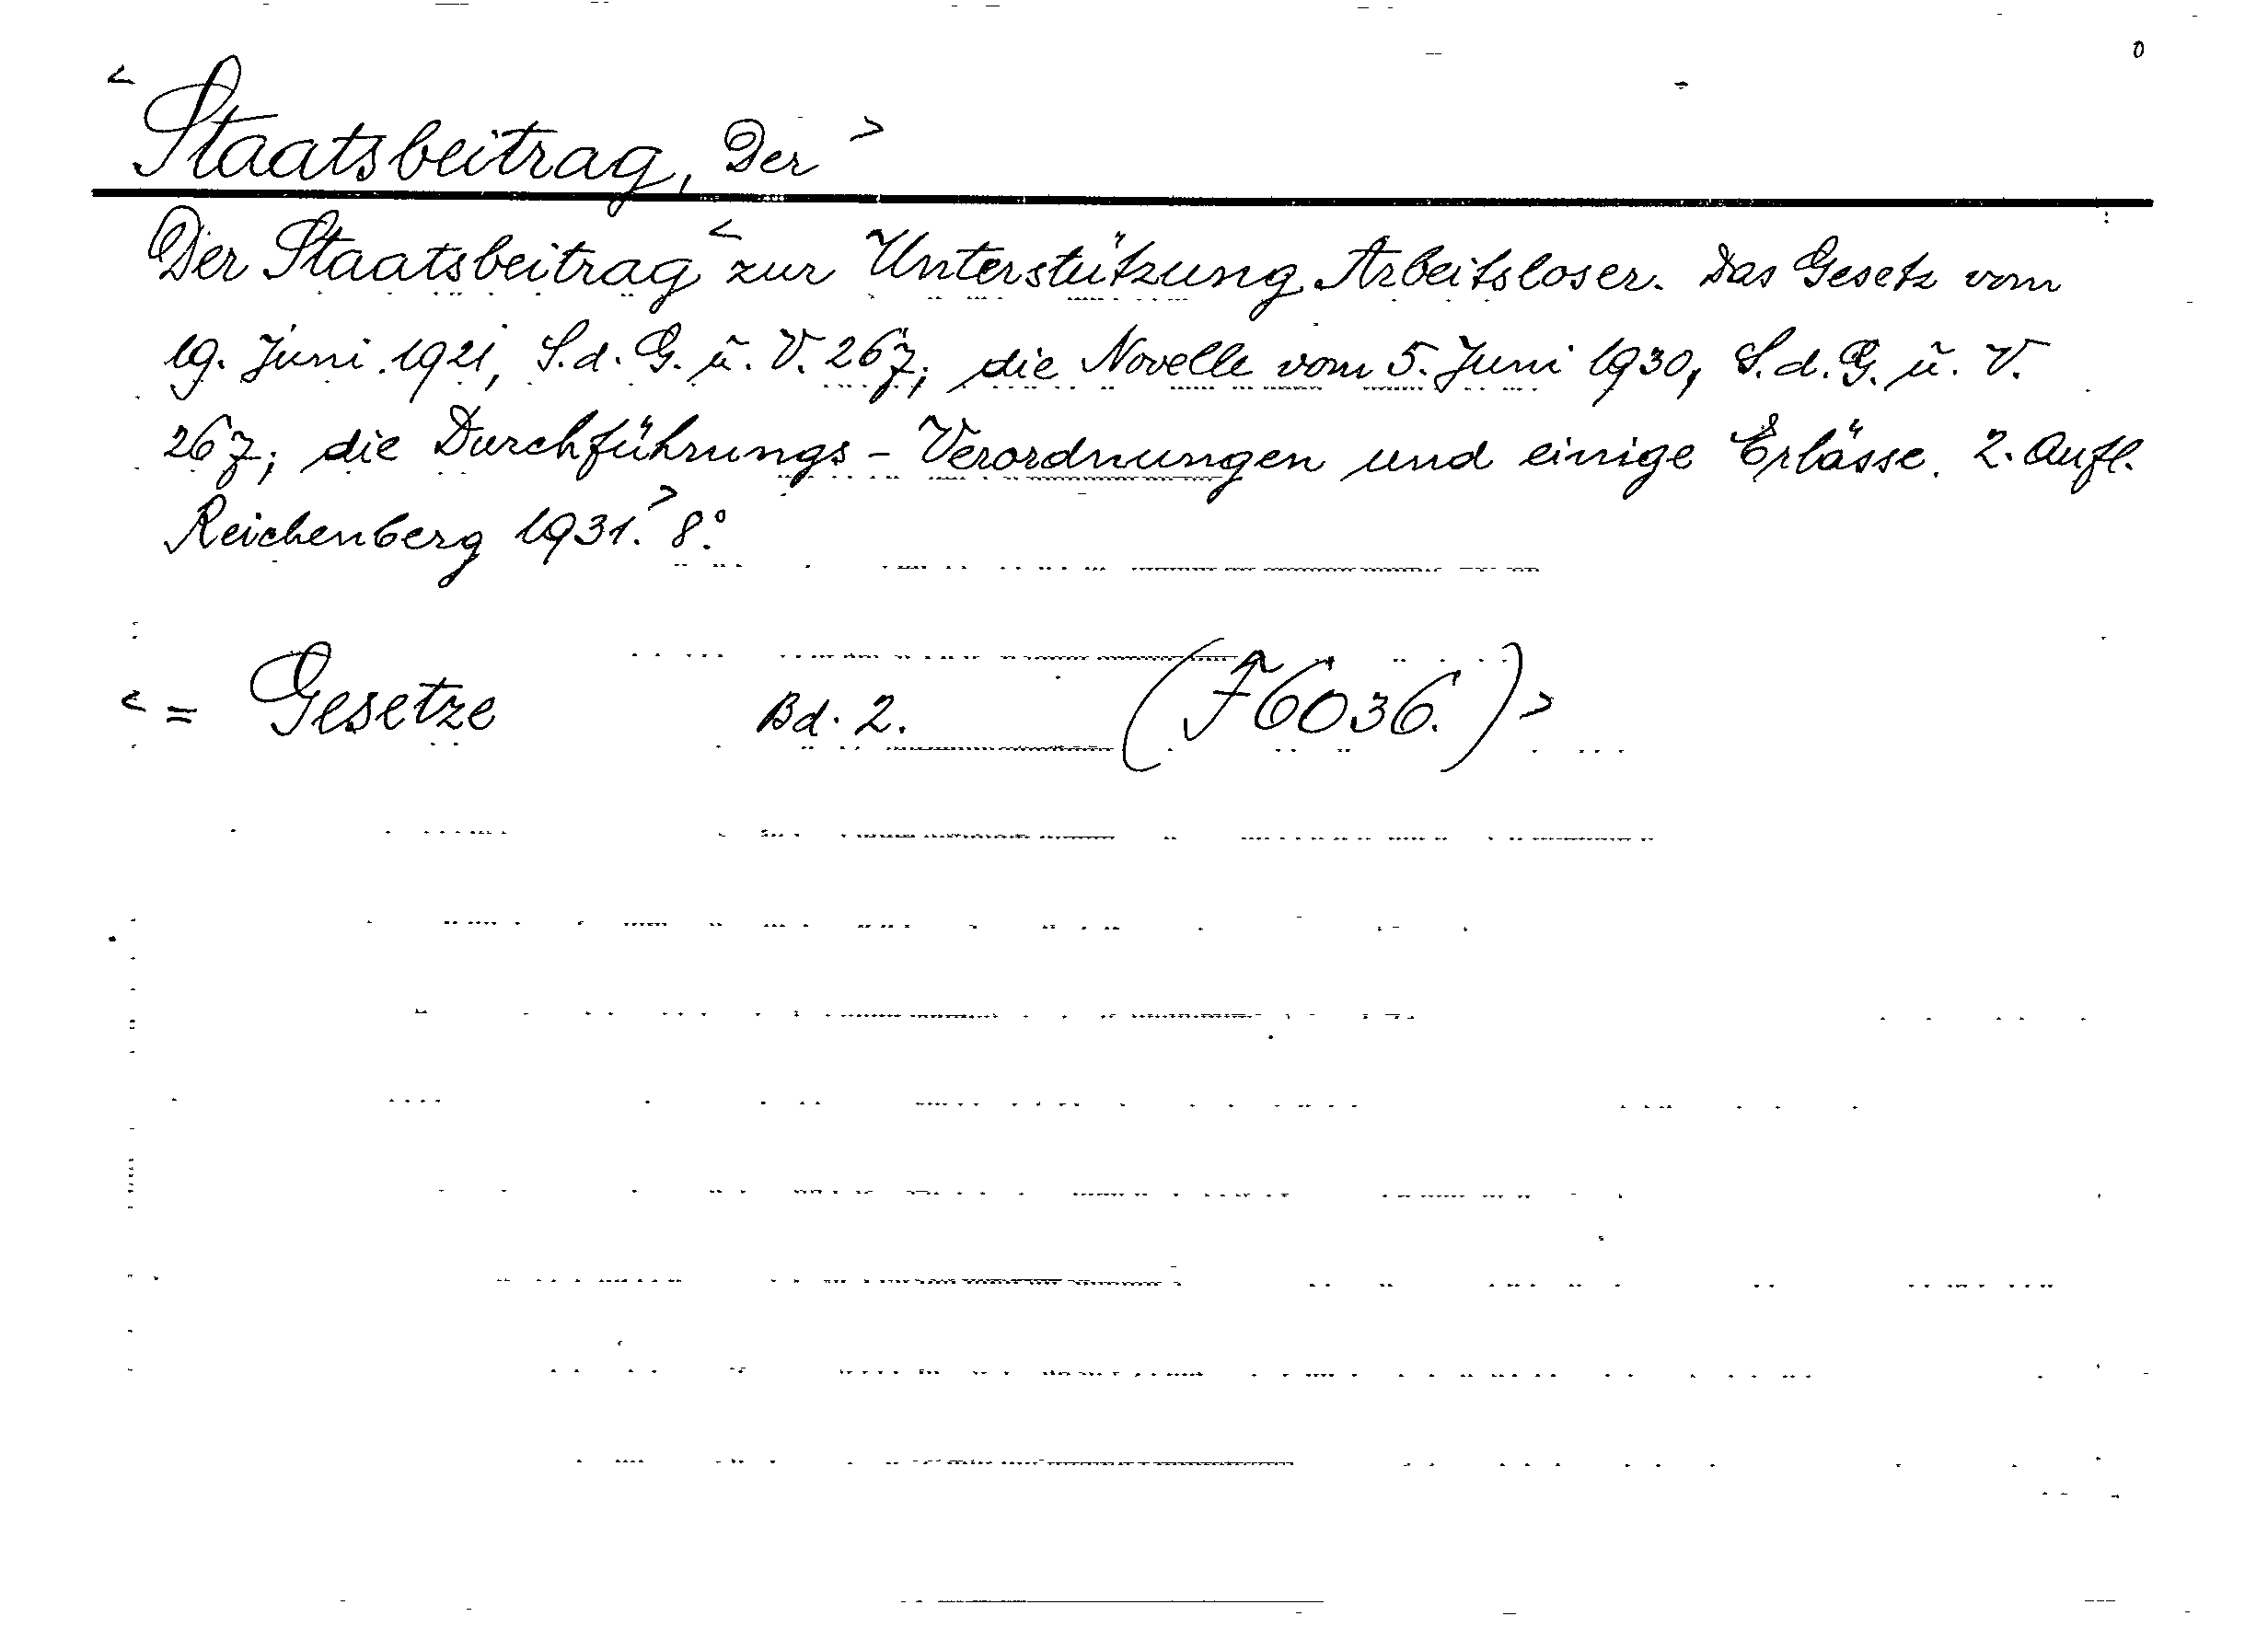 < Staatsbeitrag, Der >
Der Staatsbeitrag < zur Unterstützung Arbeitsloser. Das Gesetz vom
19. Juni 1921, S.d.G.u.V. 267; die Novelle vom 5. Juni 1930, S.d.G.u.V.
267; die Durchführungs-Verordnungen und einige Erlässe. 2. Aufl.
Reichenberg 1931. > 8°.
< = Gesetze Bd. 2. (F6036.) >